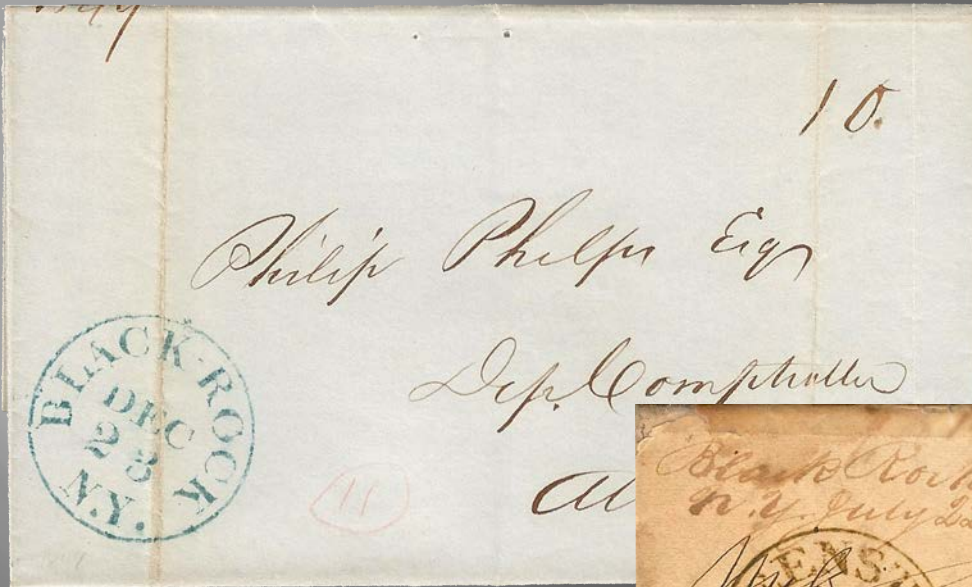 10.
Philip Phelps Esqr
Dep. Comptroller
Al
BLACK-ROCK
DEC
23
N.Y.
11
Black Rock
N.Y. July 22
ENS